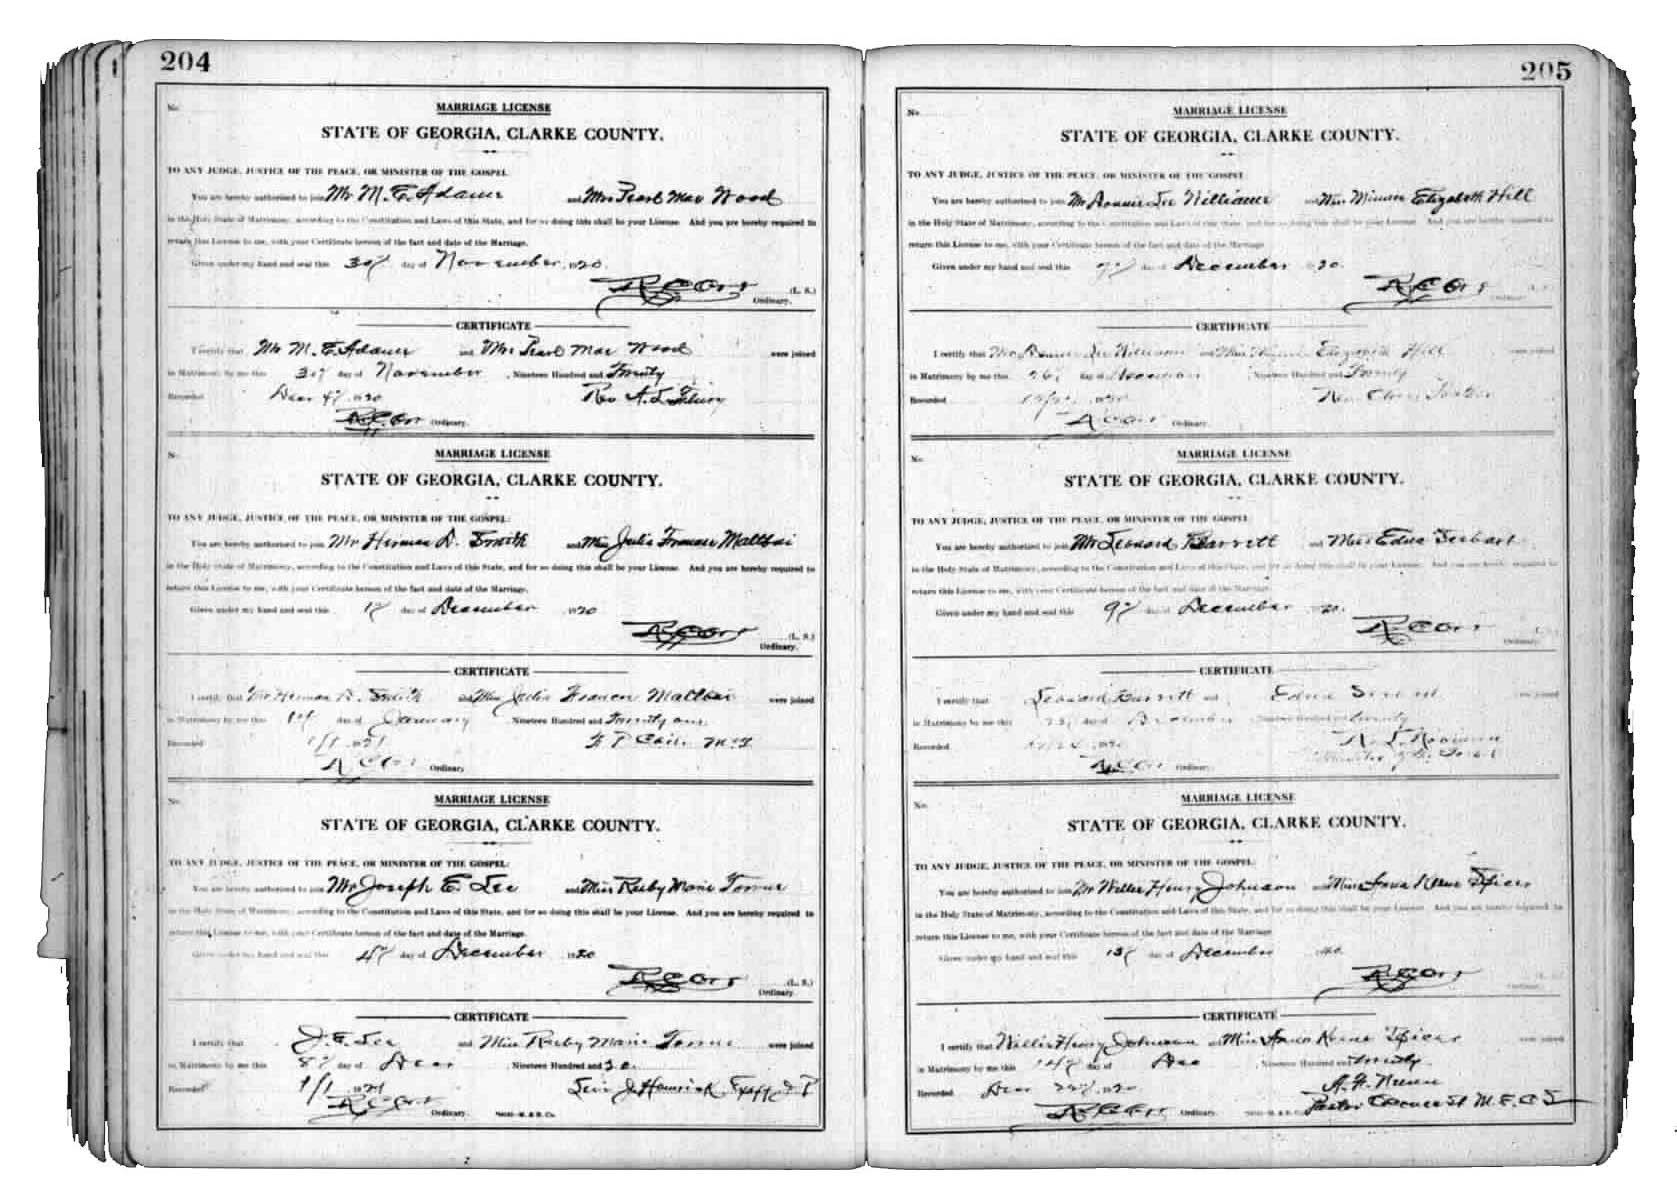 204
No.
MARRIAGE LICENSE
STATE OF GEORGIA, CLARKE COUNTY.
TO ANY JUDGE, JUSTICE OF THE PEACE, OR MINISTER OF THE GOSPEL
You are hereby authorized to join Mr M. E. Adams and Mrs Pearl Mae Wood
in the Holy State of Matrimony, according to the Constitution and Laws of this State, and for so doing this shall be your License. And you are hereby required to
return this License to me, with your Certificate hereon of the fact and date of the Marriage.
Given under my hand and seal this 30th day of November 1920.
R C Orr (L. S.)
Ordinary.
CERTIFICATE
I certify that Mr M. E. Adams and Mrs Pearl Mae Wood were joined
in Matrimony by me this 30th day of November, Nineteen Hundred and Twenty
Recorded Dec 4th 1920 Rev A. L.
R. C. Orr Ordinary.
No.
MARRIAGE LICENSE
STATE OF GEORGIA, CLARKE COUNTY.
TO ANY JUDGE, JUSTICE OF THE PEACE, OR MINISTER OF THE GOSPEL:
You are hereby authorized to join Mr Herman D. Smith and Miss Julia Frances Maltbie
in the Holy State of Matrimony, according to the Constitution and Laws of this State, and for so doing this shall be your License. And you are hereby required to
return this License to me, with your Certificate hereon of the fact and date of the Marriage.
Given under my hand and seal this 1st day of December 1920
R C Orr (L. S.)
Ordinary.
CERTIFICATE
I certify that Mr Herman D. Smith and Miss Julia Frances Maltbie were joined
in Matrimony by me this 1st day of January Nineteen Hundred and Twenty one
Recorded 1/1 1921
R C Orr Ordinary
No.
MARRIAGE LICENSE
STATE OF GEORGIA, CLARKE COUNTY.
TO ANY JUDGE, JUSTICE OF THE PEACE, OR MINISTER OF THE GOSPEL:
You are hereby authorized to join Mr Joseph E. Lee and Miss Ruby Marie
in the Holy State of Matrimony, according to the Constitution and Laws of this State, and for so doing this shall be your License. And you are hereby required to
return this License to me, with your Certificate hereon of the fact and date of the Marriage.
Given under my hand and seal this 4th day of December 1920
R C Orr (L. S.)
Ordinary.
CERTIFICATE
I certify that J. E. Lee and Miss Ruby Marie were joined
in Matrimony by me this 8th day of Dec Nineteen Hundred and 20.
Recorded 1/1 1921 Levi J.
R C Orr Ordinary.
205
No.
MARRIAGE LICENSE
STATE OF GEORGIA, CLARKE COUNTY.
TO ANY JUDGE, JUSTICE OF THE PEACE, OR MINISTER OF THE GOSPEL
You are hereby authorized to join Mr Lee Williams and Miss Minnie Elizabeth Hill
in the Holy State of Matrimony, according to the Constitution and Laws of this State, and for so doing this shall be your License. And you are hereby required to
return this License to me, with your Certificate hereon of the fact and date of the Marriage.
Given under my hand and seal this day of December 1920.
R. C. Orr
Ordinary
CERTIFICATE
I certify that Mr Lee Williams and Miss Elizabeth Hill were joined
in Matrimony by me this day of Nineteen Hundred and Twenty
Recorded 1920 Rev
R C Orr Ordinary.
No.
MARRIAGE LICENSE
STATE OF GEORGIA, CLARKE COUNTY.
TO ANY JUDGE, JUSTICE OF THE PEACE, OR MINISTER OF THE GOSPEL
You are hereby authorized to join Mr Leonard Barrett and Miss Edna
in the Holy State of Matrimony, according to the Constitution and Laws of this State, and for so doing this shall be your License. And you are hereby required to
return this License to me, with your Certificate hereon of the fact and date of the Marriage.
Given under my hand and seal this 9th day of December 1920.
R C Orr
Ordinary.
CERTIFICATE
I certify that Leonard Barrett and Edna were joined
in Matrimony by me this day of December Nineteen Hundred and twenty
Recorded 1920
R C Orr Ordinary.
No.
MARRIAGE LICENSE
STATE OF GEORGIA, CLARKE COUNTY.
TO ANY JUDGE, JUSTICE OF THE PEACE, OR MINISTER OF THE GOSPEL:
You are hereby authorized to join Mr Willis Henry Johnson and Miss Spicer
in the Holy State of Matrimony, according to the Constitution and Laws of this State, and for so doing this shall be your License. And you are hereby required to
return this License to me, with your Certificate hereon of the fact and date of the Marriage
Given under my hand and seal this 13th day of December
R C Orr
Ordinary.
CERTIFICATE
I certify that Willis Henry Johnson and Miss Spicer were joined
in Matrimony by me this 14th day of Dec Nineteen Hundred and twenty
Recorded Dec 1920 A. H.
R C Orr Ordinary. Pastor M. E. C S